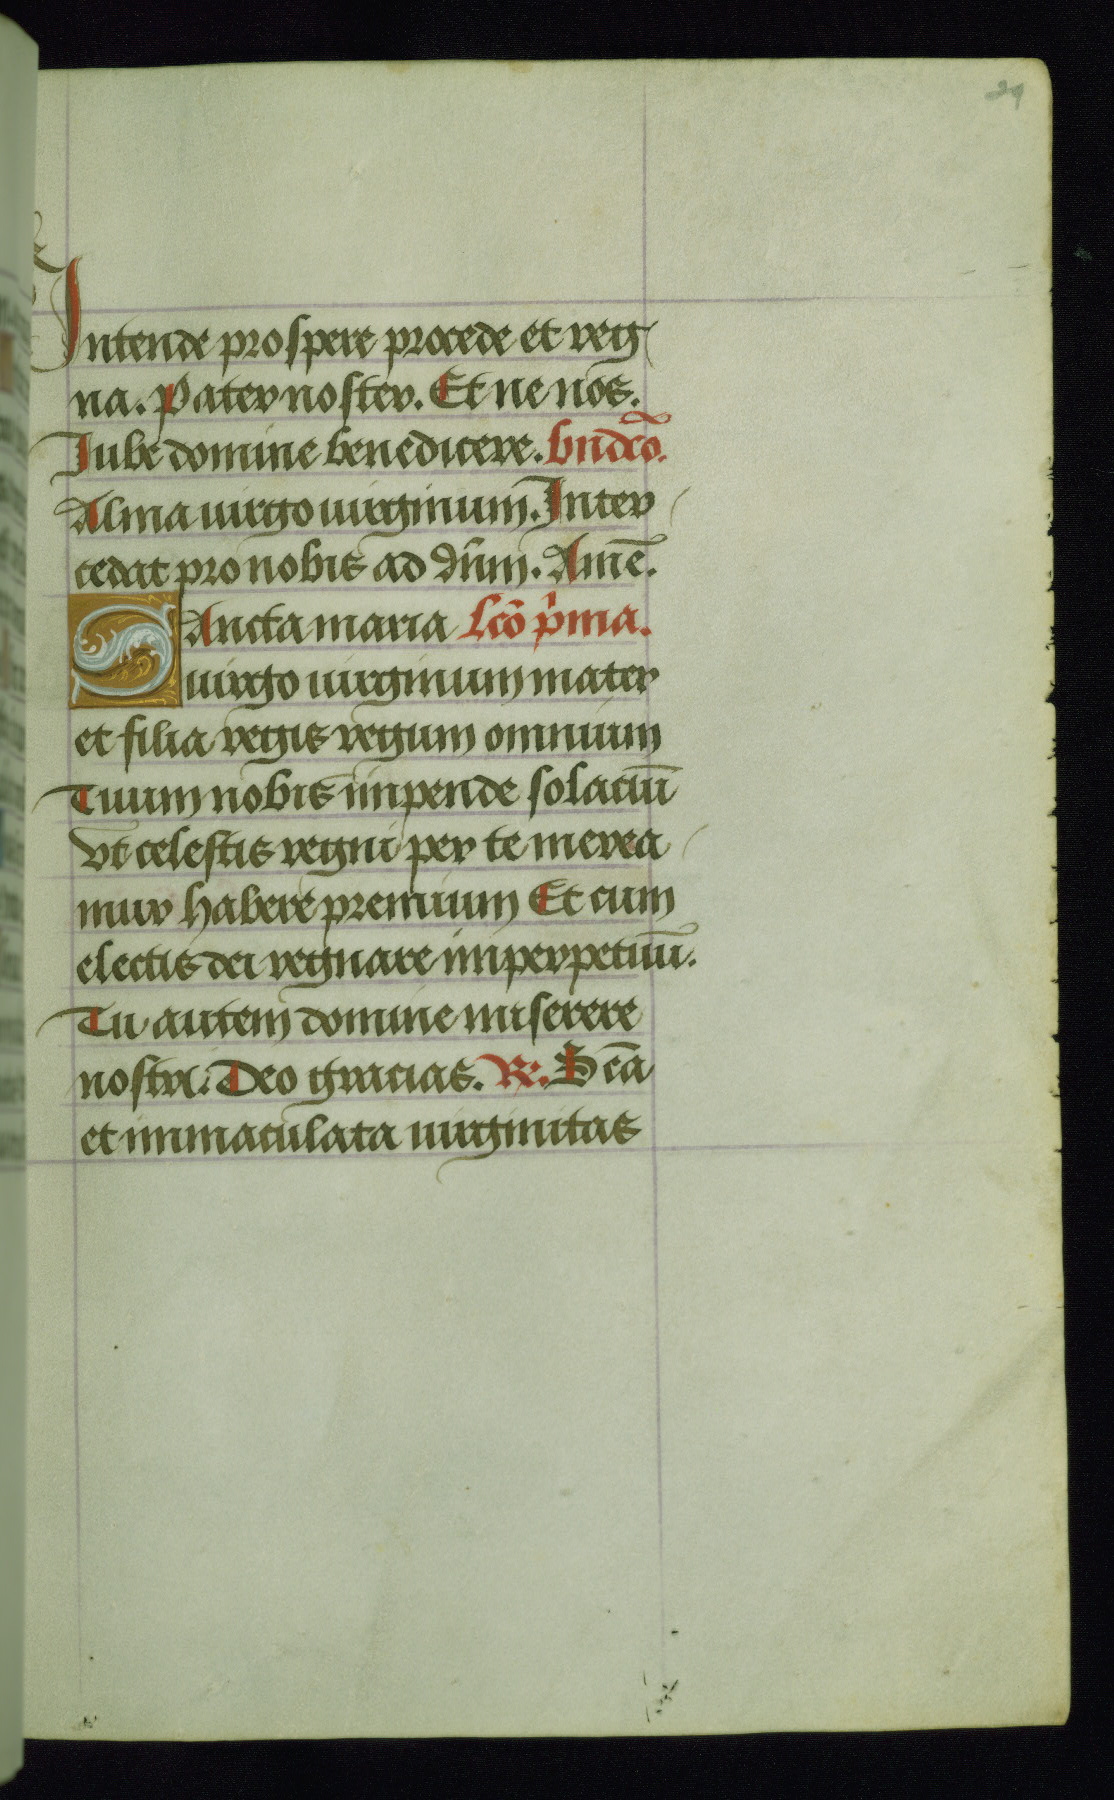 29
Intende prospere procede et reg
na. Pater noster. Et ne nos.
Iube domine benedicere. bndcō.
Alma uirgo uirginum. Inter
cedat pro nobis ad dn̄m. Amē.
SAncta maria Lcō p̄ma.
uirgo uirginum mater
et filia regis regum omnium
Tuum nobis impende solaciū
Vt celestis regni per te merea
mur habere premium Et cum
electis dei regnare imperpetuū.
Tu autem domine miserere
nostri. Deo gracias. R. Scā
et immaculata uirginitas